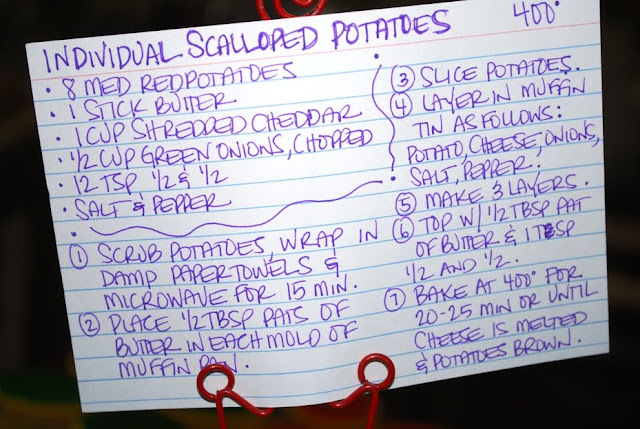 INDIVIDUAL SCALLOPED POTATOES 400°
• 8 MED RED POTATOES
• 1 STICK BUTTER
• 1 CUP SHREDDED CHEDDAR
• 1/2 CUP GREEN ONIONS, CHOPPED
• 12 TSP 1/2 & 1/2
• SALT & PEPPER
① SCRUB POTATOES, WRAP IN
DAMP PAPER TOWELS &
MICROWAVE FOR 15 MIN.
② PLACE 1/2 TBSP PATS OF
BUTTER IN EACH MOLD OF
MUFFIN PAN.
③ SLICE POTATOES.
④ LAYER IN MUFFIN
TIN AS FOLLOWS:
POTATO, CHEESE, ONIONS,
SALT, PEPPER.
⑤ MAKE 3 LAYERS.
⑥ TOP W/ 1/2 TBSP PAT
OF BUTTER & 1 TSP
1/2 AND 1/2.
⑦ BAKE AT 400° FOR
20-25 MIN OR UNTIL
CHEESE IS MELTED
& POTATOES BROWN.